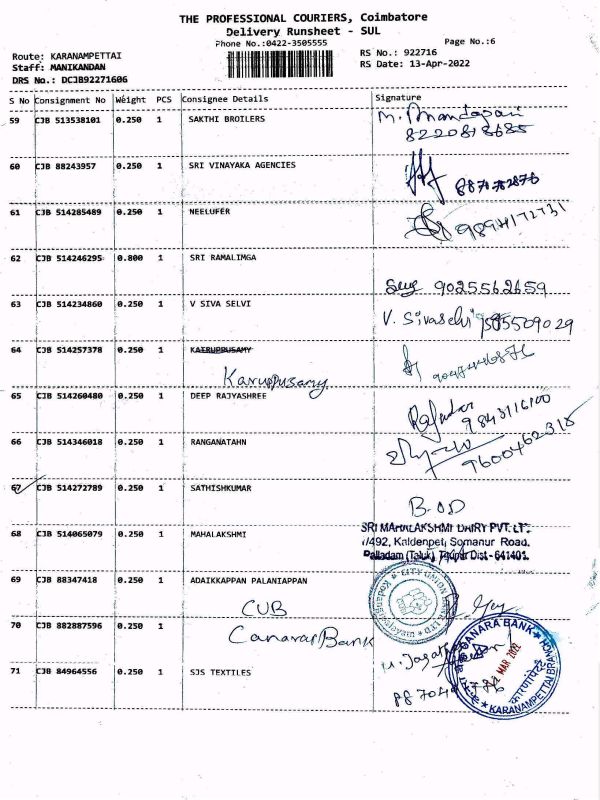 THE PROFESSIONAL COURIERS, Coimbatore
Delivery Runsheet - SUL
Phone No.:0422-3505555
Page No.:6
Route: KARANAMPETTAI
RS No.: 922716
Staff: MANIKANDAN
RS Date: 13-Apr-2022
DRS No.: DCJB92271606
S No Consignment No Weight PCS Consignee Details Signature
59 CJB 513538101 0.250 1 SAKTHI BROILERS
8220818685
60 CJB 88243957 0.250 1 SRI VINAYAKA AGENCIES
61 CJB 514285489 0.250 1 NEELUFER
62 CJB 514246295 0.800 1 SRI RAMALIMGA
9025562659
63 CJB 514234860 0.250 1 V SIVA SELVI V. Sivaselvi
64 CJB 514257378 0.250 1 KAIRUPPUSAMY
Karuppusamy
65 CJB 514260480 0.250 1 DEEP RAJYASHREE
66 CJB 514346018 0.250 1 RANGANATAHN
9600462318
67 CJB 514272789 0.250 1 SATHISHKUMAR
B.OD
68 CJB 514065079 0.250 1 MAHALAKSHMI
SRI MAHALAKSHMI DAIRY PVT. LT
/492, Kaldenpet, Somanur Road,
Palladam (Taluk) Tirupur Dist - 641401.
69 CJB 88347418 0.250 1 ADAIKKAPPAN PALANIAPPAN
CUB
CITY UNION
70 CJB 882887596 0.250 1
Canara Bank
CANARA BANK
MAR 2022
KARANAMPETTAI BRANCH
71 CJB 84964556 0.250 1 SJS TEXTILES